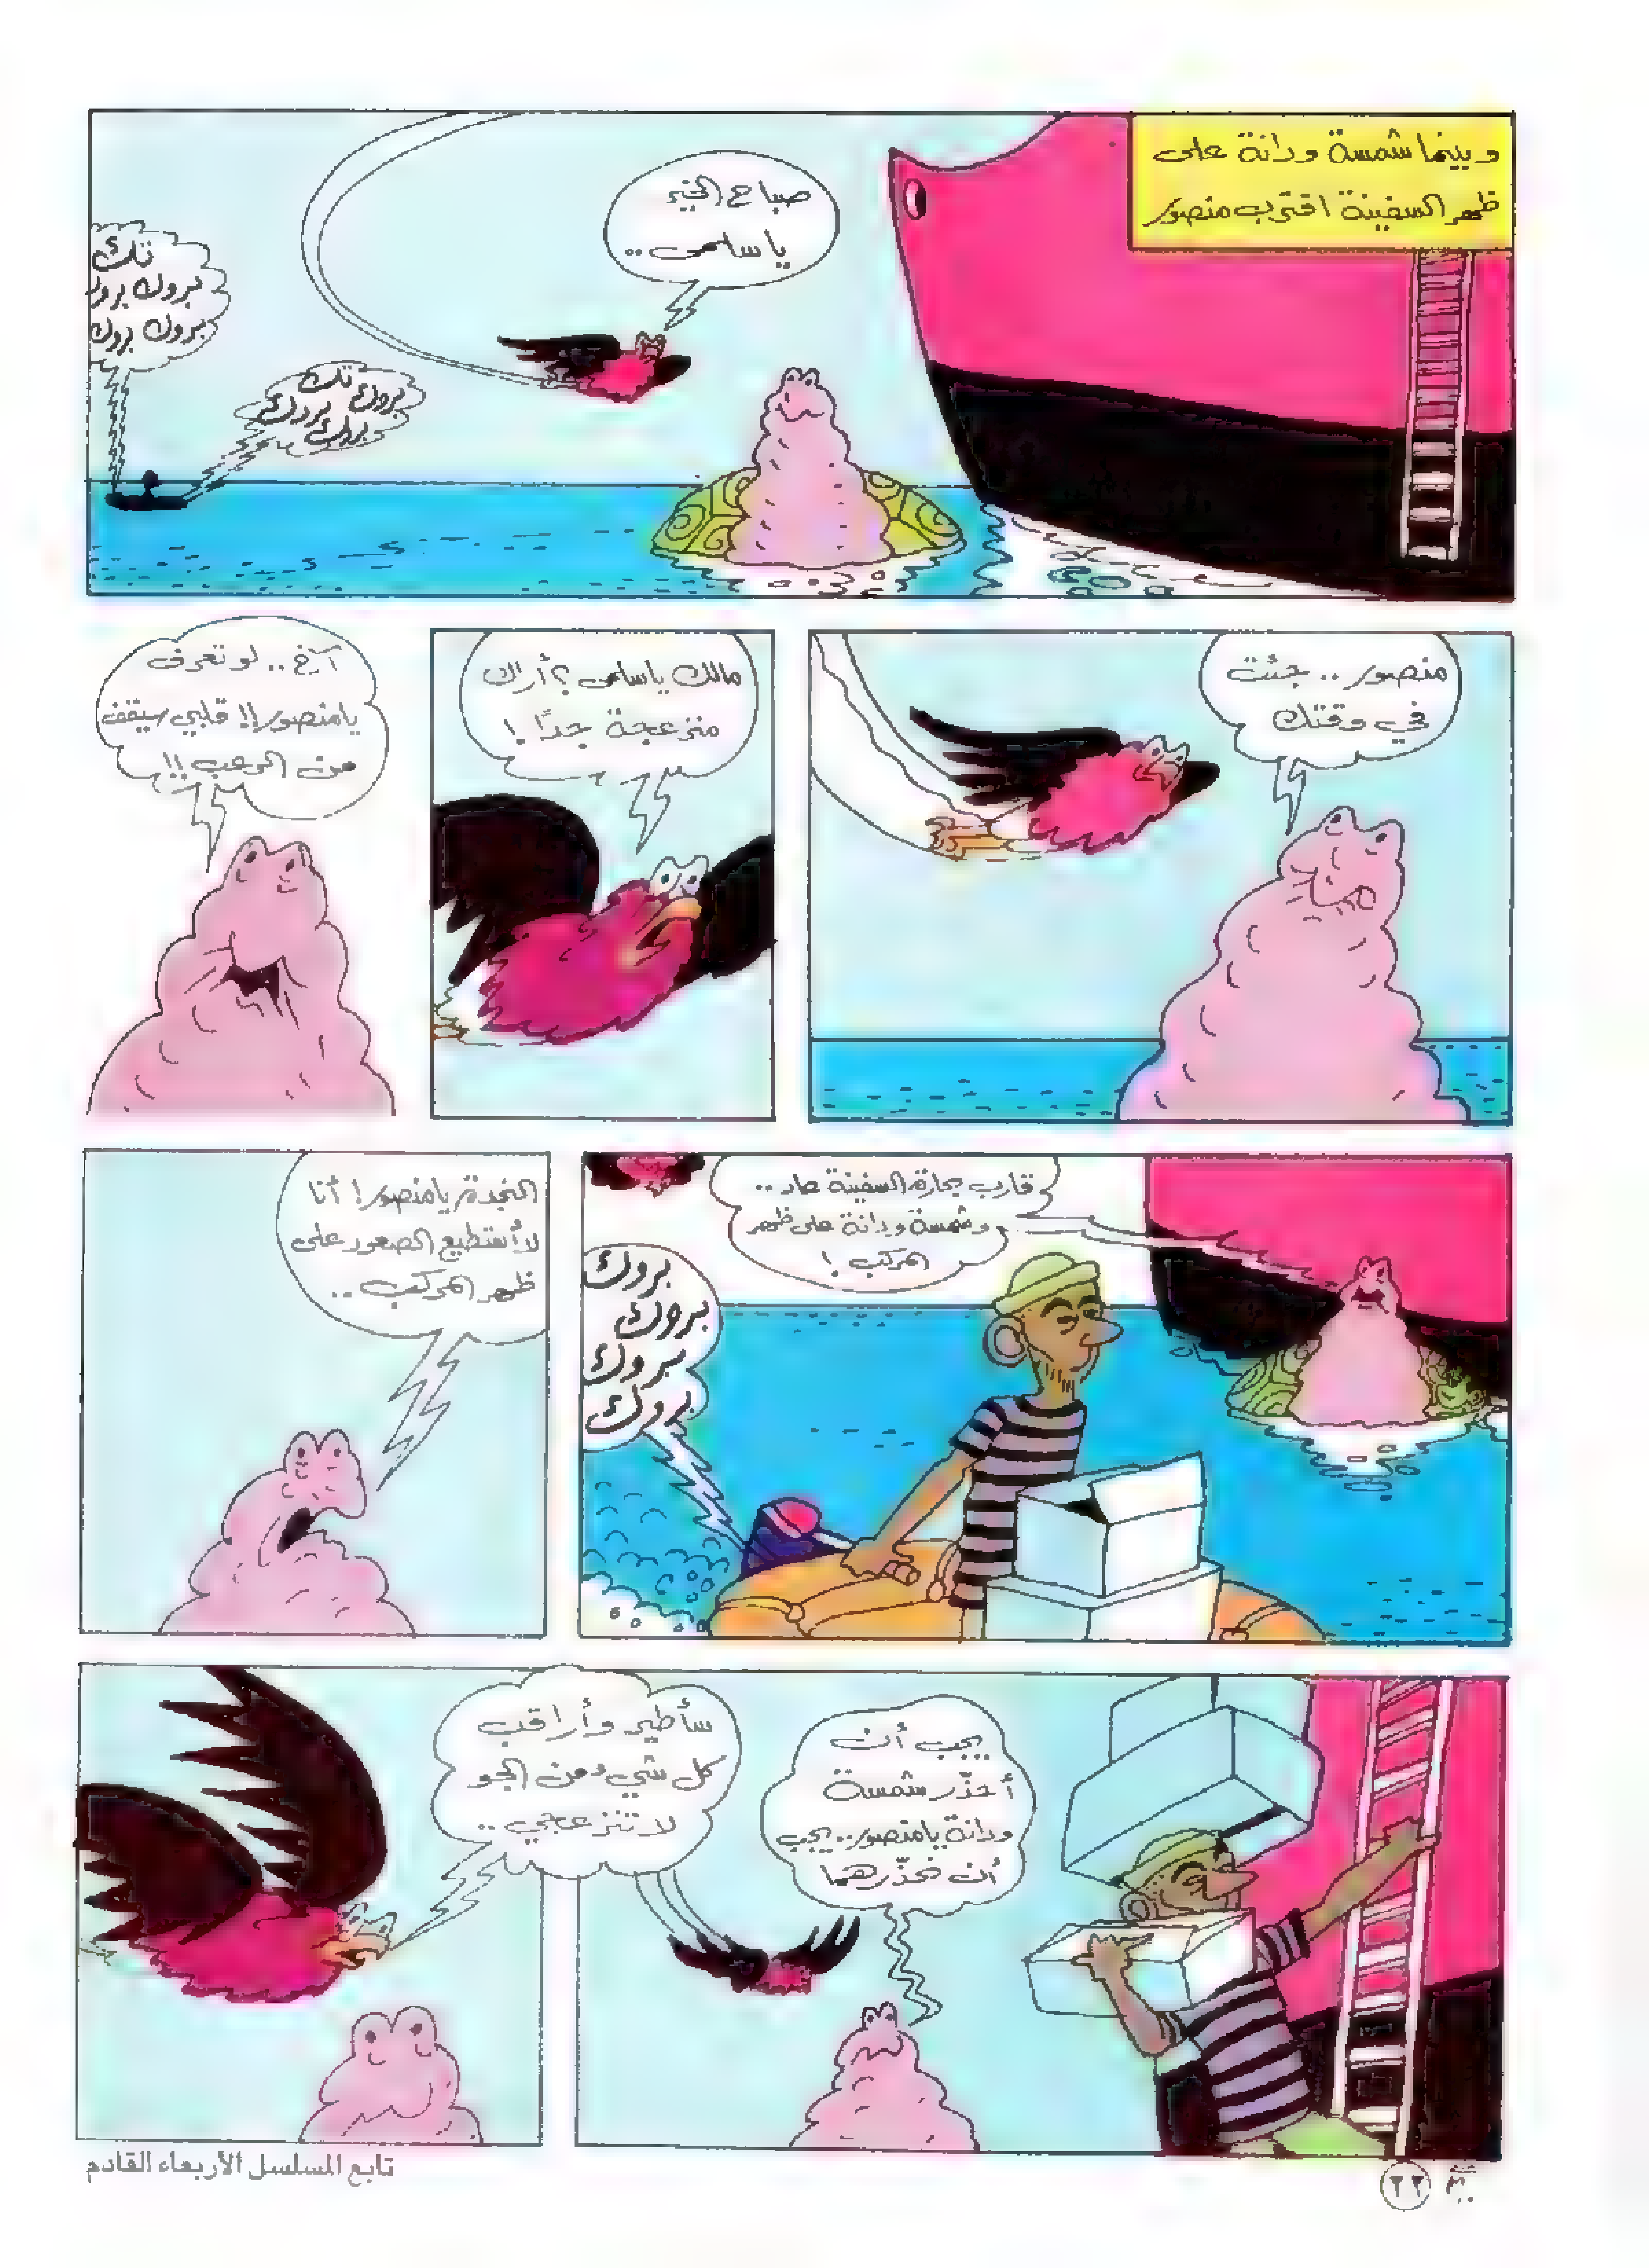 وبينما شمسة ودانة على
ظهر السفينة اقترب منصور
صباح الخير
يا سلمى ..
تك
بروك بروك
بروك بروك
تك
بروك بروك
بروك
منصور .. جئت
في وقتك
مالك يا سلمى ؟ أراك
منزعجة جدًا !
آخ .. لو تعرف
يا منصور !! قلبي سيقف
من الرعب !!
قارب بحارة السفينة عاد ..
وشمسة ودانة على ظهر
المركب !
بروك
بروك
بروك
بروك
النجدة يا منصور ! أنا
لا أستطيع الصعود على
ظهر المركب ..
يجب أن
أحذّر شمسة
ودانة يا منصور .. يجب
أن نحذّرهما
سأطير وأراقب
كل شيء من الجو
لا تنزعجي ..
تابع المسلسل الأربعاء القادم
٢٢